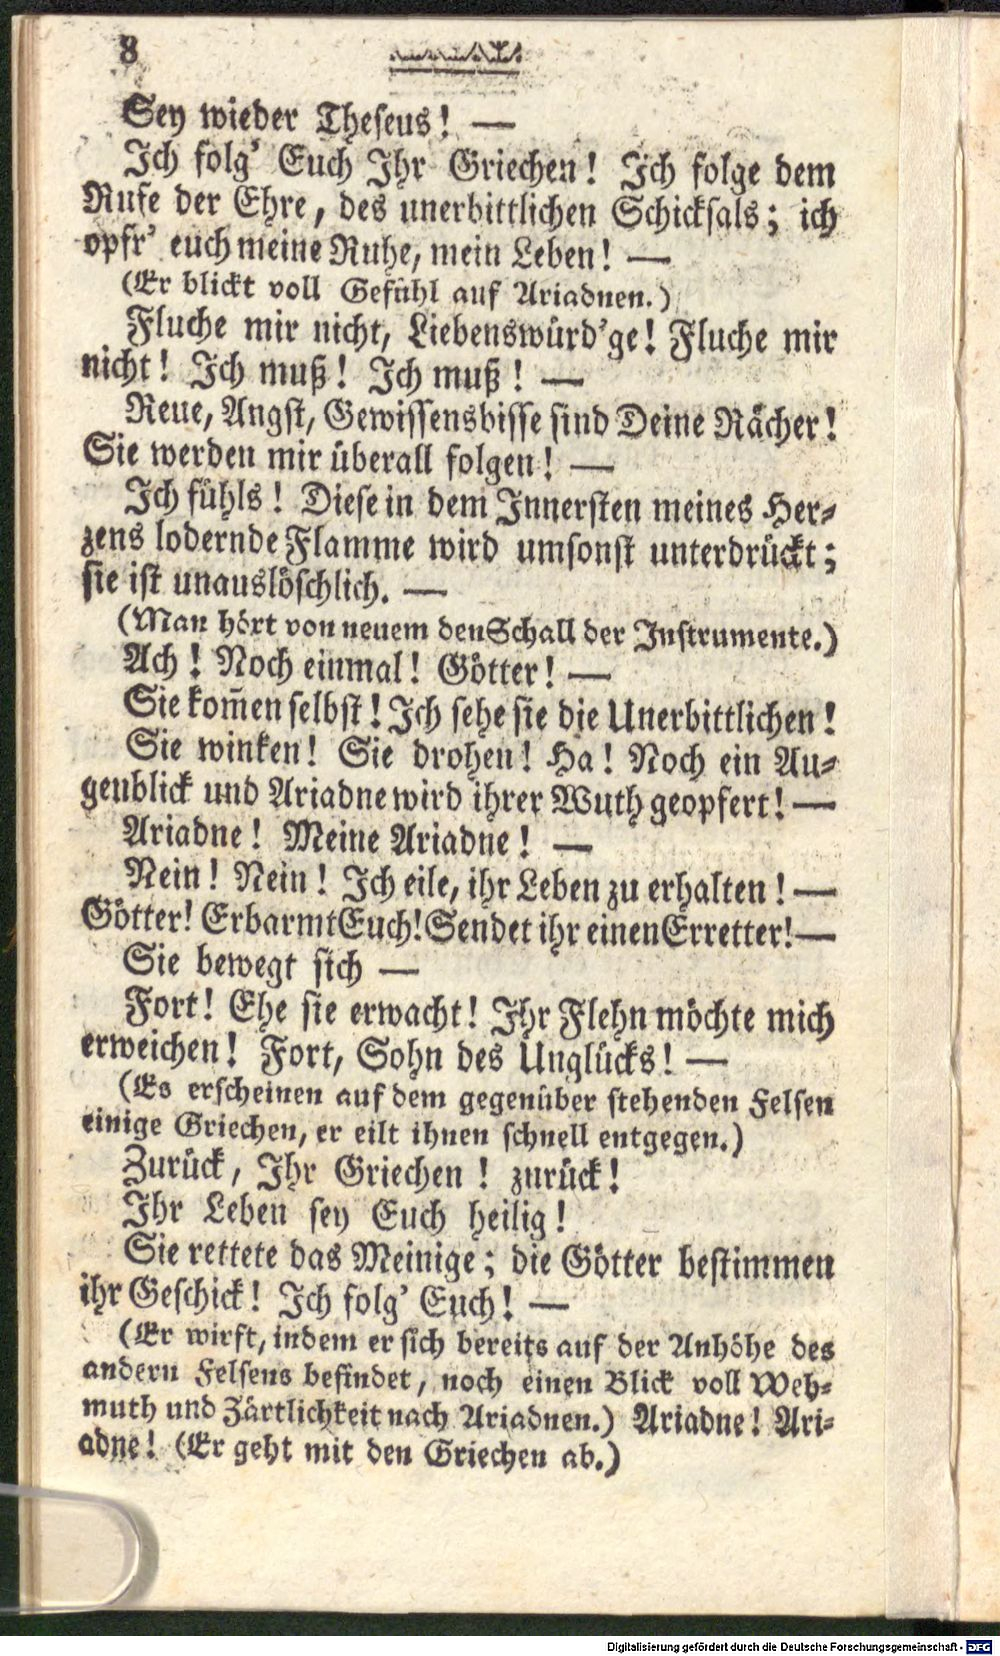 8
Sey wieder Theseus! —
Ich folg' Euch Ihr Griechen! Ich folge dem
Rufe der Ehre, des unerbittlichen Schicksals; ich
opfr' euch meine Ruhe, mein Leben! —
(Er blickt voll Gefühl auf Ariadnen.)
Fluche mir nicht, Liebenswürd'ge! Fluche mir
nicht! Ich muß! Ich muß! —
Reue, Angst, Gewissensbisse sind Deine Rächer!
Sie werden mir überall folgen! —
Ich fühls! Diese in dem Innersten meines Her-
zens lodernde Flamme wird umsonst unterdrückt;
sie ist unauslöschlich. —
(Man hört von neuem den Schall der Instrumente.)
Ach! Noch einmal! Götter! —
Sie kom̃en selbst! Ich sehe sie die Unerbittlichen!
Sie winken! Sie drohen! Ha! Noch ein Au-
genblick und Ariadne wird ihrer Wuth geopfert! —
Ariadne! Meine Ariadne! —
Nein! Nein! Ich eile, ihr Leben zu erhalten! —
Götter! Erbarmt Euch! Sendet ihr einen Erretter! —
Sie bewegt sich —
Fort! Ehe sie erwacht! Ihr Flehn möchte mich
erweichen! Fort, Sohn des Unglücks! —
(Es erscheinen auf dem gegenüber stehenden Felsen
einige Griechen, er eilt ihnen schnell entgegen.)
Zurück, Ihr Griechen! zurück!
Ihr Leben sey Euch heilig!
Sie rettete das Meinige; die Götter bestimmen
ihr Geschick! Ich folg' Euch! —
(Er wirft, indem er sich bereits auf der Anhöhe des
andern Felsens befindet, noch einen Blick voll Weh-
muth und Zärtlichkeit nach Ariadnen.) Ariadne! Ari-
adne! (Er geht mit den Griechen ab.)
Digitalisierung gefördert durch die Deutsche Forschungsgemeinschaft - DFG